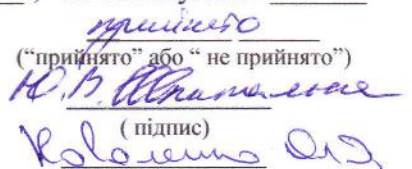 прийнято
(“прийнято” або “ не прийнято”)
Ю.В.
( підпис)
Коваленко О.Л.